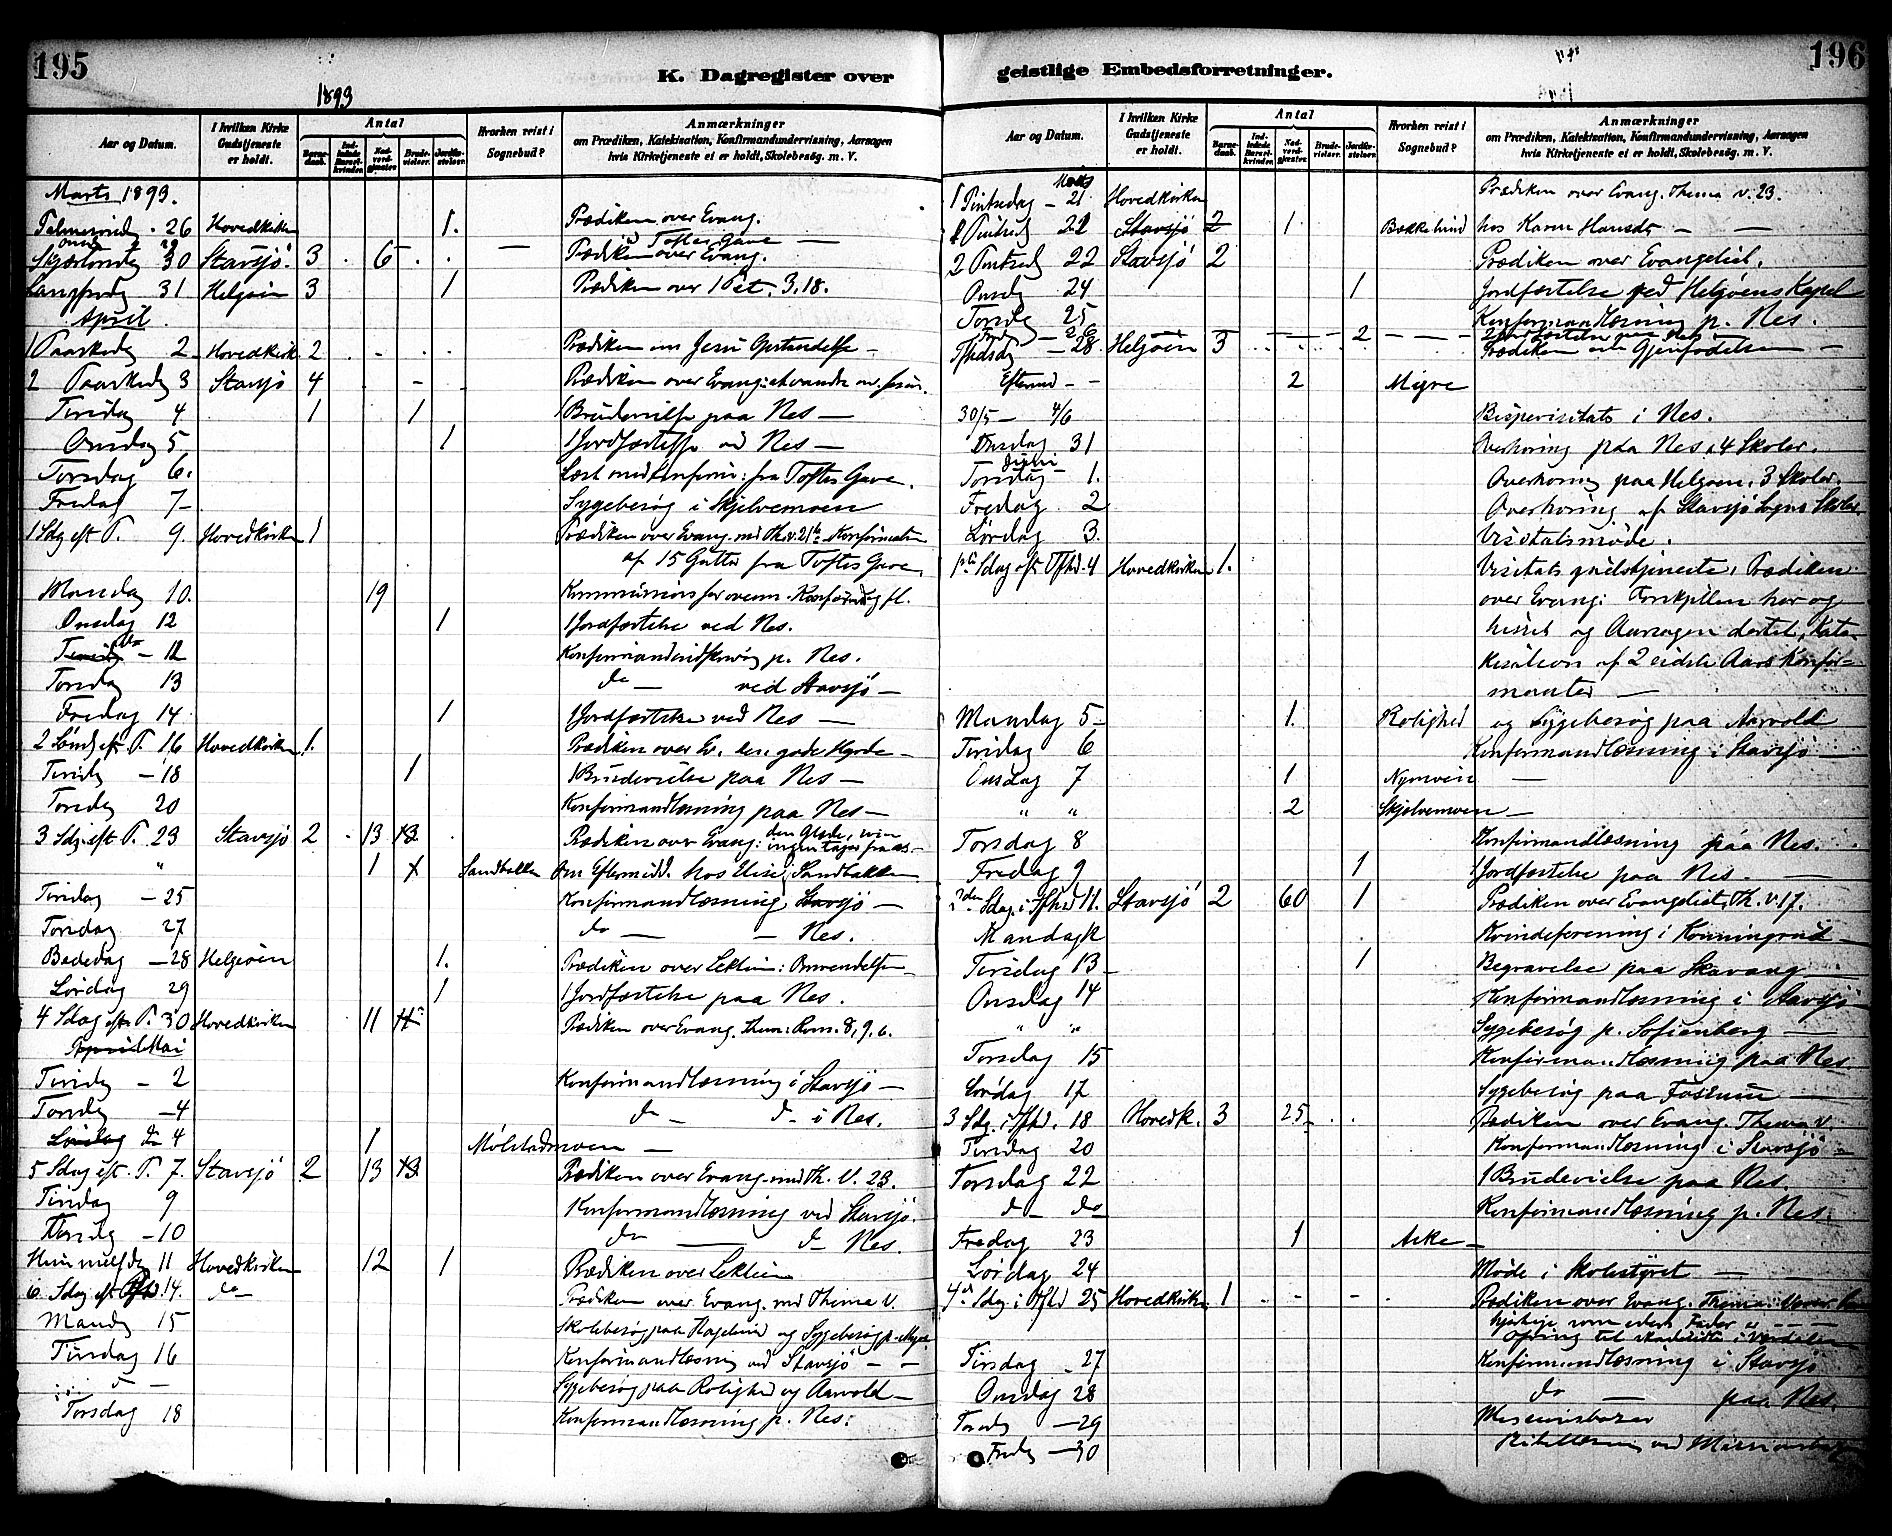 195
K. Dagregister over
1893
Aar og Datum.
I hvilken Kirke Gudstjeneste er holdt.
Antal
Barnedaab.
Indledede Barselkvinder
Nadverdgjæster
Brudevielser.
Jordfæstelser.
Hvorhen reist i Sognebud?
Anmærkninger
om Prædiken, Katekisation, Konfirmandundervisning, Aarsagen
hvis Kirketjeneste ei er holdt, Skolebesøg. m. V.
Marts 1893.
Palmesøndag 26 Hovedkirken 1. Prædiken over Evang.
Toftes Gave
Skjærtorsdag 30 Stavsjö. 3 6 Prædiken over Evang.
Langfredag 31 Helgøen 3 1 Prædiken over 1 Pet. 3.18.
April
1 Paaskedag 2 Hovedkirk 2 Prædiken om Jesu Opstandelse
2 Paaskedag 3 Stavsjö 4 Prædiken over Evang:
Tirsdag 4 1 1 1 Brudevielse paa Nes
Onsdag 5 1 1 Jordfæstelse ved Nes
Torsdag 6. Læst med Konfirm: fra Toftes Gave.
Fredag 7 Sygebesøg i Skjelvemoen
1 Sdg eft P. 9. Hovedkirken 1 Prædiken over Evang. Konfirmation
af 15 Gutter fra Toftes Gave.
Mandag 10. 19
Onsdag 12 1 1 Jordfæstelse ved Nes.
12 p. Nes.
Torsdag 13 do ved Stavsjö
Fredag 14 1 1 Jordfæstelse ved Nes
2 Sönd eft P. 16 Hovedkirken 1. Prædiken over Ev. den gode Hyrde
Tirsdg 18 1 1 Brudevielse paa Nes
Torsdg 20 Konfirmandlæsning paa Nes
3 Sdg. eft P. 23 Stavsjö 2 13 13 Prædiken over Evang: den Glæde, som ingen tager fra os
" 1 Sandbakken Om Eftermidd. hos Sandbakken
Tirsdag 25 Konfirmandlæsning Stavsjö
Torsdag 27 do Nes.
Bededag 28 Helgeöen 1. Prædiken over Lektien: Omvendelsen
Lördag 29 1 1 Jordfæstelse paa Nes.
4 Sdag eft P. 30 Hovedkirken 11 Prædiken over Evang. Them: Rom. 8, 9. 6.
Mai
Tirsdg 2 Konfirmandlæsning i Stavsjö
Torsdg 4 do do i Nes.
Lördag 4 1
5 Sdag eft. P. 7. Stavsjö 2 13 13 Prædiken over Evang. med Th. V. 23.
Tirsdag 9 Konfirmandlæsning ved Stavsjö.
10 do do Nes.
11 Hovedkirken 12 1 Prædiken over Lektien
6 Sdag eft 14. do Prædiken over Evang. med Thema V.
Mandg 15 Skolebesøg paa og Sygebesøg p.
Tirsdag 16 Konfirmandlæsning ved Stavsjö
do Sygebesøg paa Rolighed og Aarvold
Torsdag 18 Konfirmandlæsning p. Nes.
196
geistlige Embedsforretninger.
Aar og Datum.
I hvilken Kirke Gudstjeneste er holdt.
Antal
Barnedaab.
Indledede Barselkvinder
Nadverdgjæster
Brudevielser.
Jordfæstelser.
Hvorhen reist i Sognebud?
Anmærkninger
om Prædiken, Katekisation, Konfirmandundervisning, Aarsagen
hvis Kirketjeneste ei er holdt, Skolebesøg. m. V.
1 Pintsedag 21 Hovedkirken Prædiken over Evang. Thema v. 23.
Pintsed 21 Stavsjö 2 1 hos Karen
2 Pintsed 22 Stavsjö 2 Prædiken over Evangeliet.
Onsdg 24 1 Jordfæstelse ved Helgøens Kapel
Torsdg 25 Konfirmandlæsning p. Nes.
26 2
28 Helgøen 3 Prædiken om Gjenfødelsen
Eftermd 2 Myre
30/5 4/6 Bispevisitats i Nes.
Onsdag 31 Overhøring paa Nes, 4 Skoler.
Juni
Torsdag 1. Overhøring paa Helgøen, 3 Skoler.
Fredag 2 Overhøring af Stavsjö Sogns Skoler
Lørdag 3. Visitatsmøde.
1ste Sdag eft. 4 Hovedkirken 1. Visitatsgudstjeneste, Prædiken
over Evang: Forskjellen her og
hisset og Aarsagen dertil, Kate-
kisation af 2 sidste Aars Konfir-
manter
Mandag 5 1. Rolighed og Sygebesøg paa Aarvold
Tirsdag 6 Konfirmandlæsning i Stavsjö
Onsdag 7 1 Nymoen
" " 2 Skjelvemoen
Torsdag 8 Konfirmandlæsning paa Nes.
Fredag 9 1 1 Jordfæstelse paa Nes.
2den Sdag. i 11. Stavsjö 2 60 1 Prædiken over Evangeliet, Th. v. 17.
Mandag 12 Kvindeforening i
Tirsdag 13 1 Begravelse paa Skavang
Onsdag 14 Konfirmandlæsning i Stavsjö
" " Sygebesøg p. Sofienberg
Torsdag 15 Konfirmandlæsning paa Nes
Lördag 17 Sygebesøg paa
3 Sdg. i 18 Hovedk. 3 25 Prædiken over Evang. Thema v.
Tirsdag 20 Konfirmandlæsning i Stavsjö
Torsdag 22 1 Brudevielse paa Nes.
do do Konfirmandlæsning p. Nes.
Fredag 23 1 Aske
Lördag 24 Møde i Skolestyret
4de Sdag i 25 Hovedkirken 1 Prædiken over Evang. Thema:
som eders Fader
Tirsdag 27 Konfirmandlæsning i Stavsjö
Onsdag 28 do paa Nes.
Torsdg 29 Missionsbazar
Fredg 30 ved